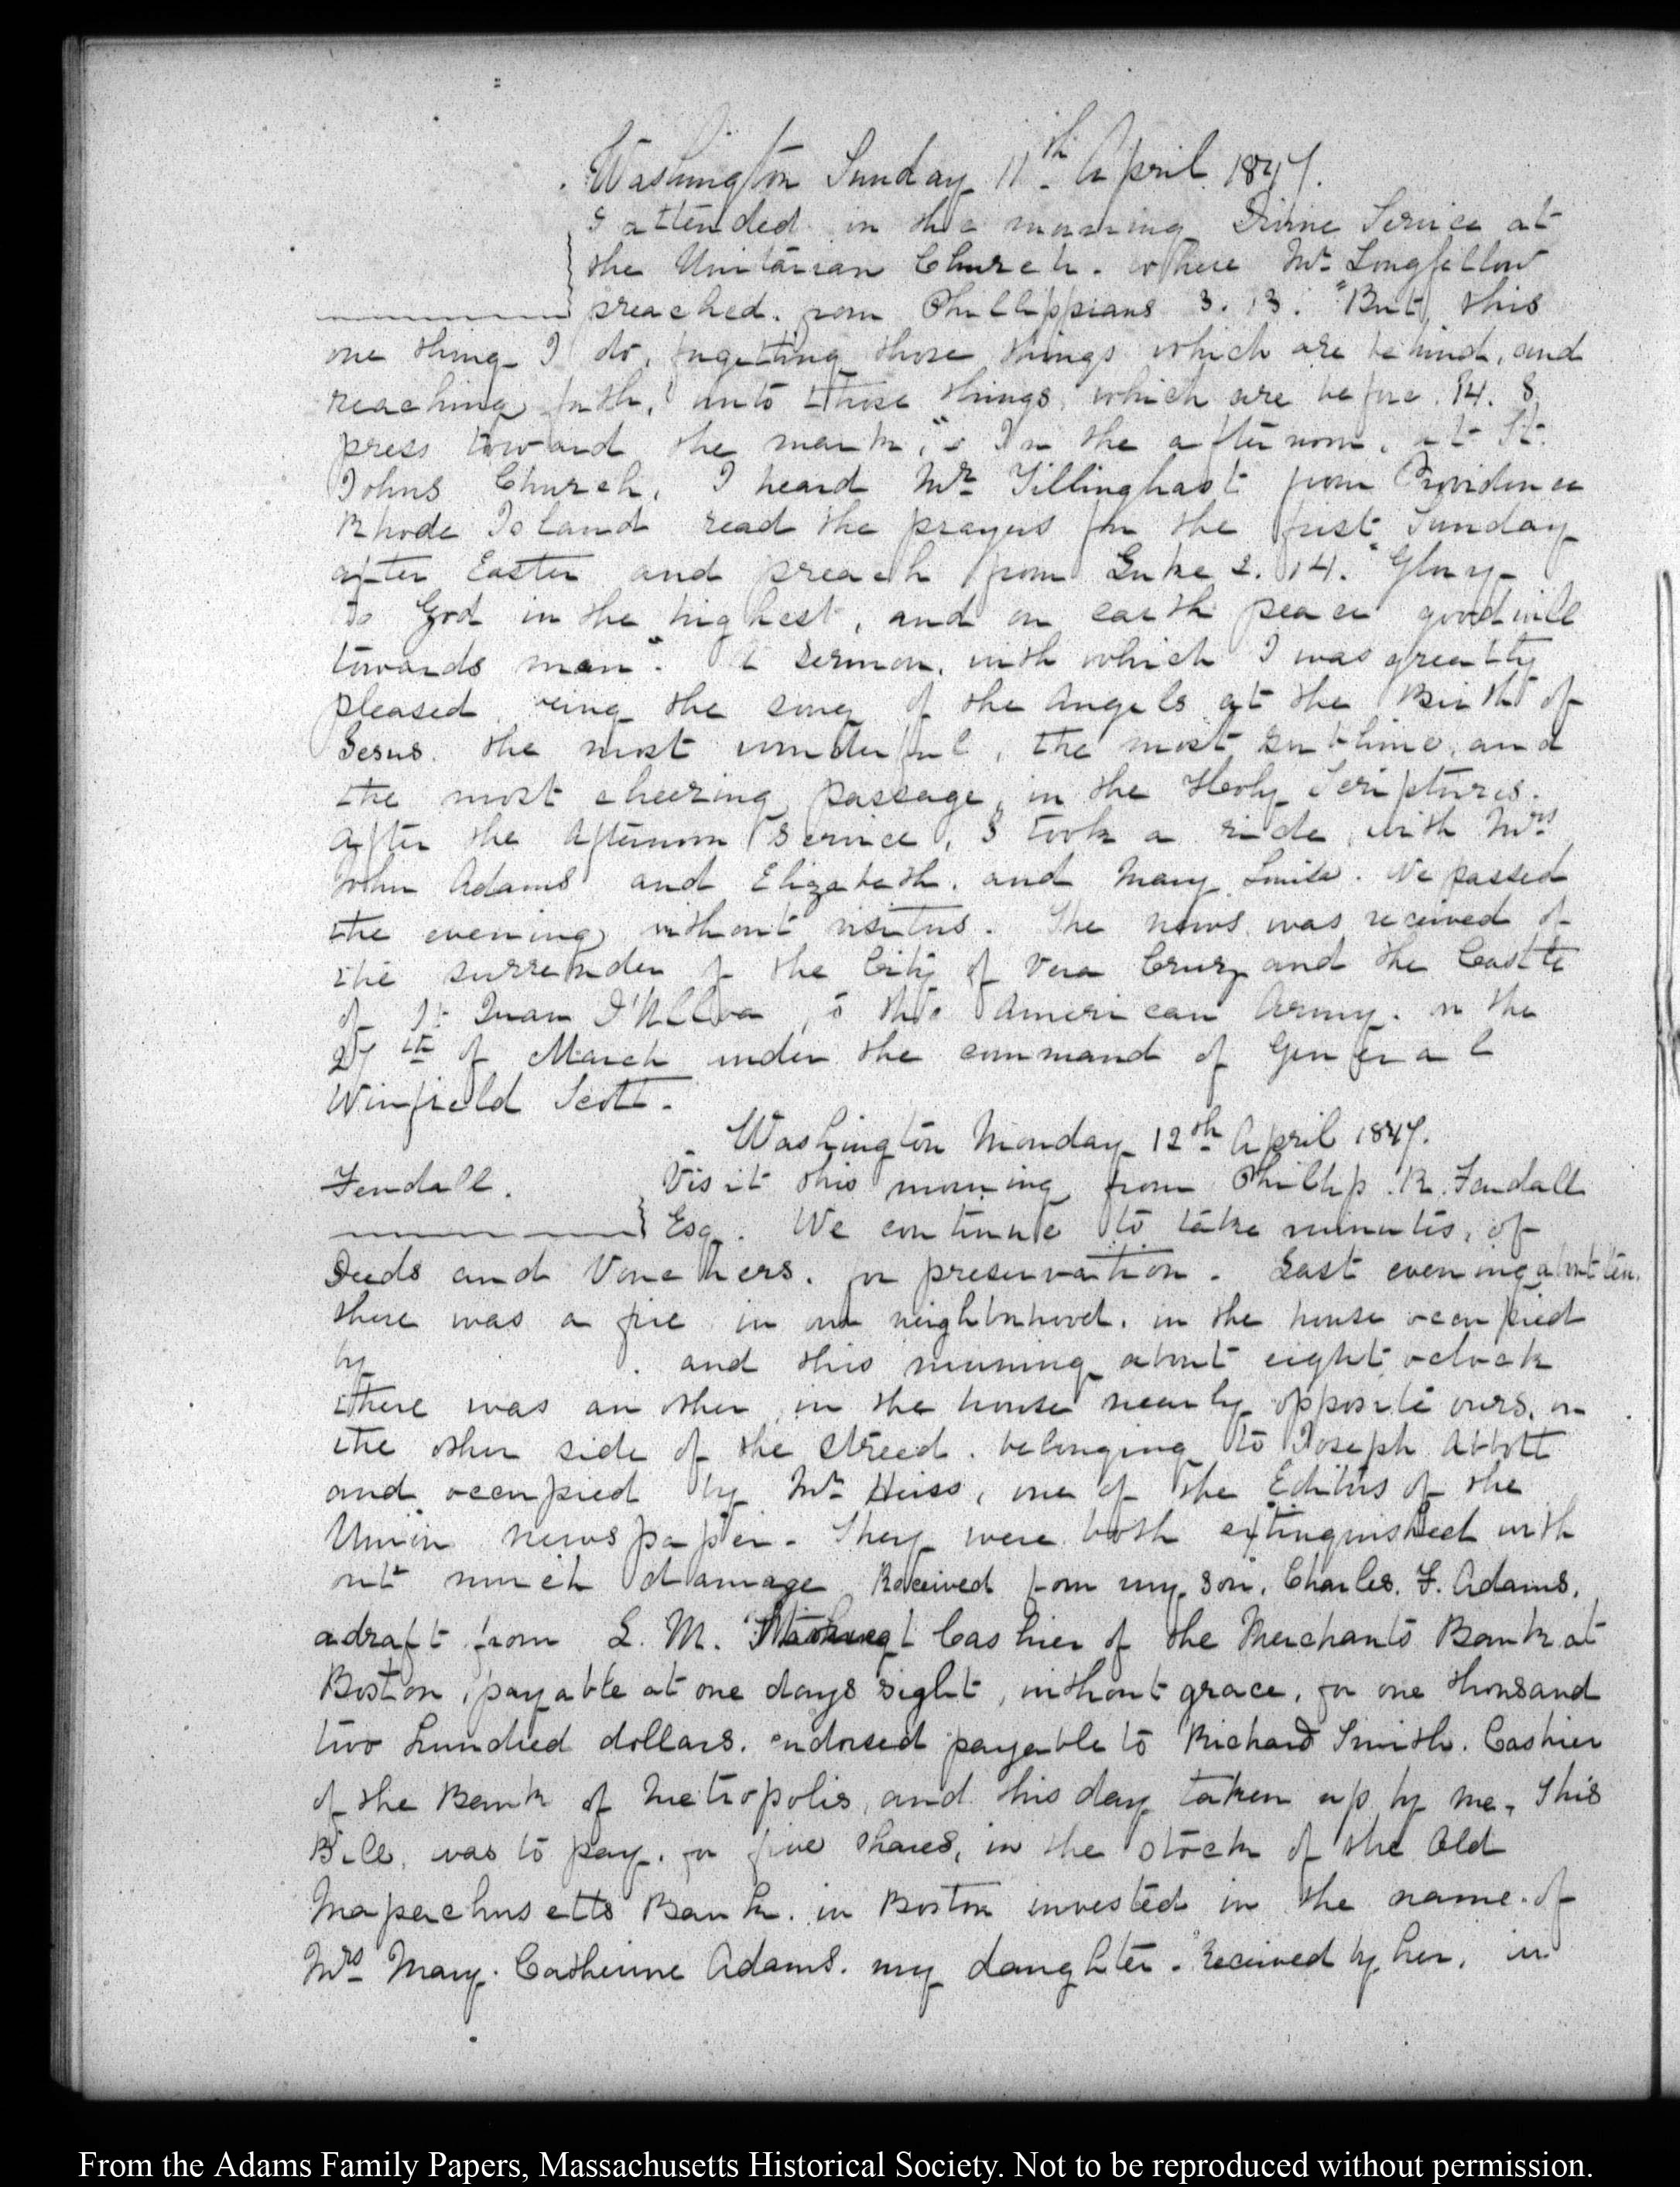 Washington Sunday 11th April 1847.
I attended in the morning Divine Service at
the Unitarian Church. where Mr Longfellow
preached. from Phillippians 3. 13. "But, this
one thing I do, forgetting those things which are behind, and
reaching forth, unto those things, which are before. 14. I
press toward the mark," In the afternoon, at St.
Johns Church, I heard Mr Tillinghast from Providence
Rhode Island read the prayers for the first Sunday
after Easter and preach from Luke 2. 14. "Glory
to God in the highest, and on earth peace good will
towards men". A sermon, with which I was greatly
pleased, being the song of the Angels at the Birth of
Jesus. the most wonderful, the most sublime, and
the most cheering passage, in the Holy Scriptures.
After the Afternoon Service, I took a ride, with Mrs
John Adams and Elizabeth, and Mary Louisa. We passed
the evening without visitors. The news was received of
the surrender of the City of Vera Cruz and the Castle
of St Juan D'Ulloa, to the American Army. on the
27th of March under the command of General
Winfield Scott.
Washington Monday 12th April 1847.
Fendall. Visit this morning from Phillip. R. Fendall
Esq. We continue to take minutes, of
Deeds and Vouchers. for preservation. Last evening about ten.
there was a fire in our neighborhood. in the house occupied
by . and this morning about eight oclock
there was an other, in the house nearly opposite ours, on
the other side of the streed. belonging to Joseph Abbott
and occupied by Mr Heiss, one of the Editors of the
Union newspaper. They were both extinguished with
out much damage Received from my son, Charles. F. Adams,
a draft from L. M. Cashier of the Merchants Bank at
Boston, payable at one days sight, without grace, for one thousand
two hundred dollars. endorsed payable to Richard Smith. Cashier
of the Bank of Metropolis, and this day taken up by me. This
Bill, was to pay. for five shares, in the stock of the Old
Massachusetts Bank. in Boston invested in the name of
Mrs Mary. Catherine Adams. my daughter. Received by her, in
From the Adams Family Papers, Massachusetts Historical Society. Not to be reproduced without permission.